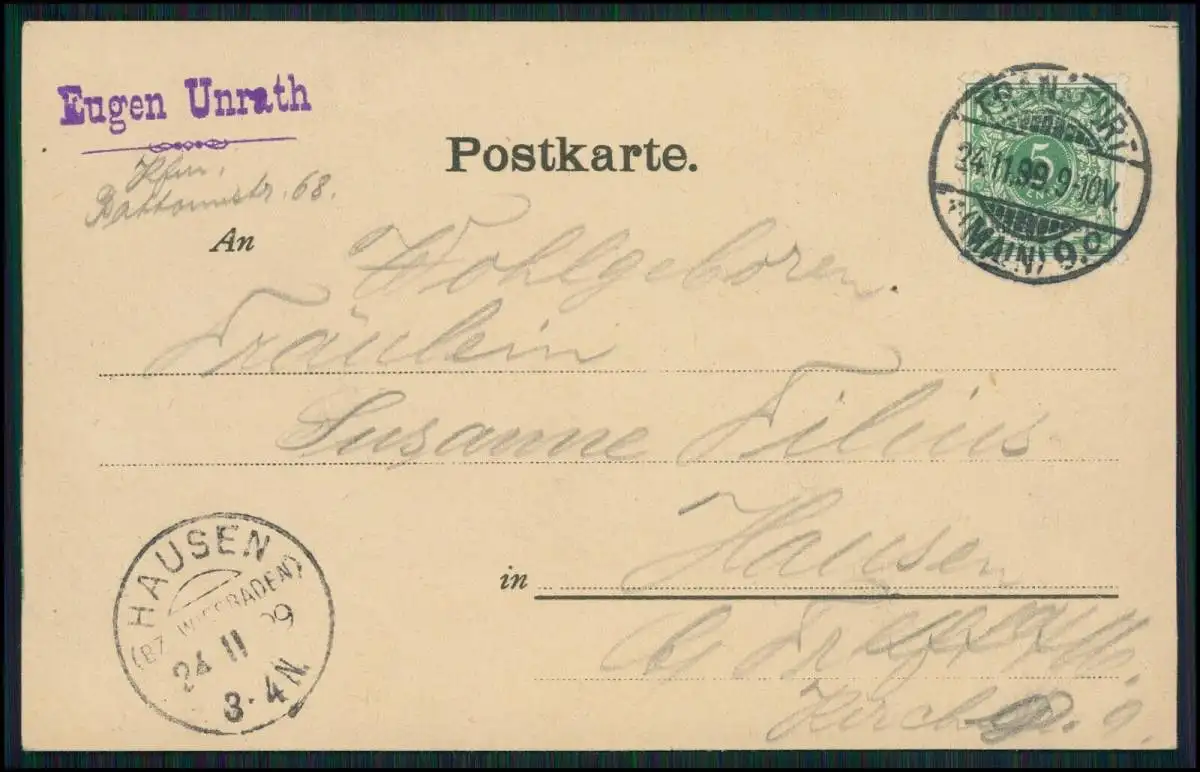 Eugen Unrath
Ffm.
Battonnstr. 68.
Postkarte.
FRANKFURT
5
24.11.99.9-10V.
*(MAIN) 9.o
An
Wohlgeboren.
Fräulein
Susanne Filius
in
Hausen
b/
Kirchg. 9
HAUSEN
(BZ. WIESBADEN)
24 11 99
3-4N.